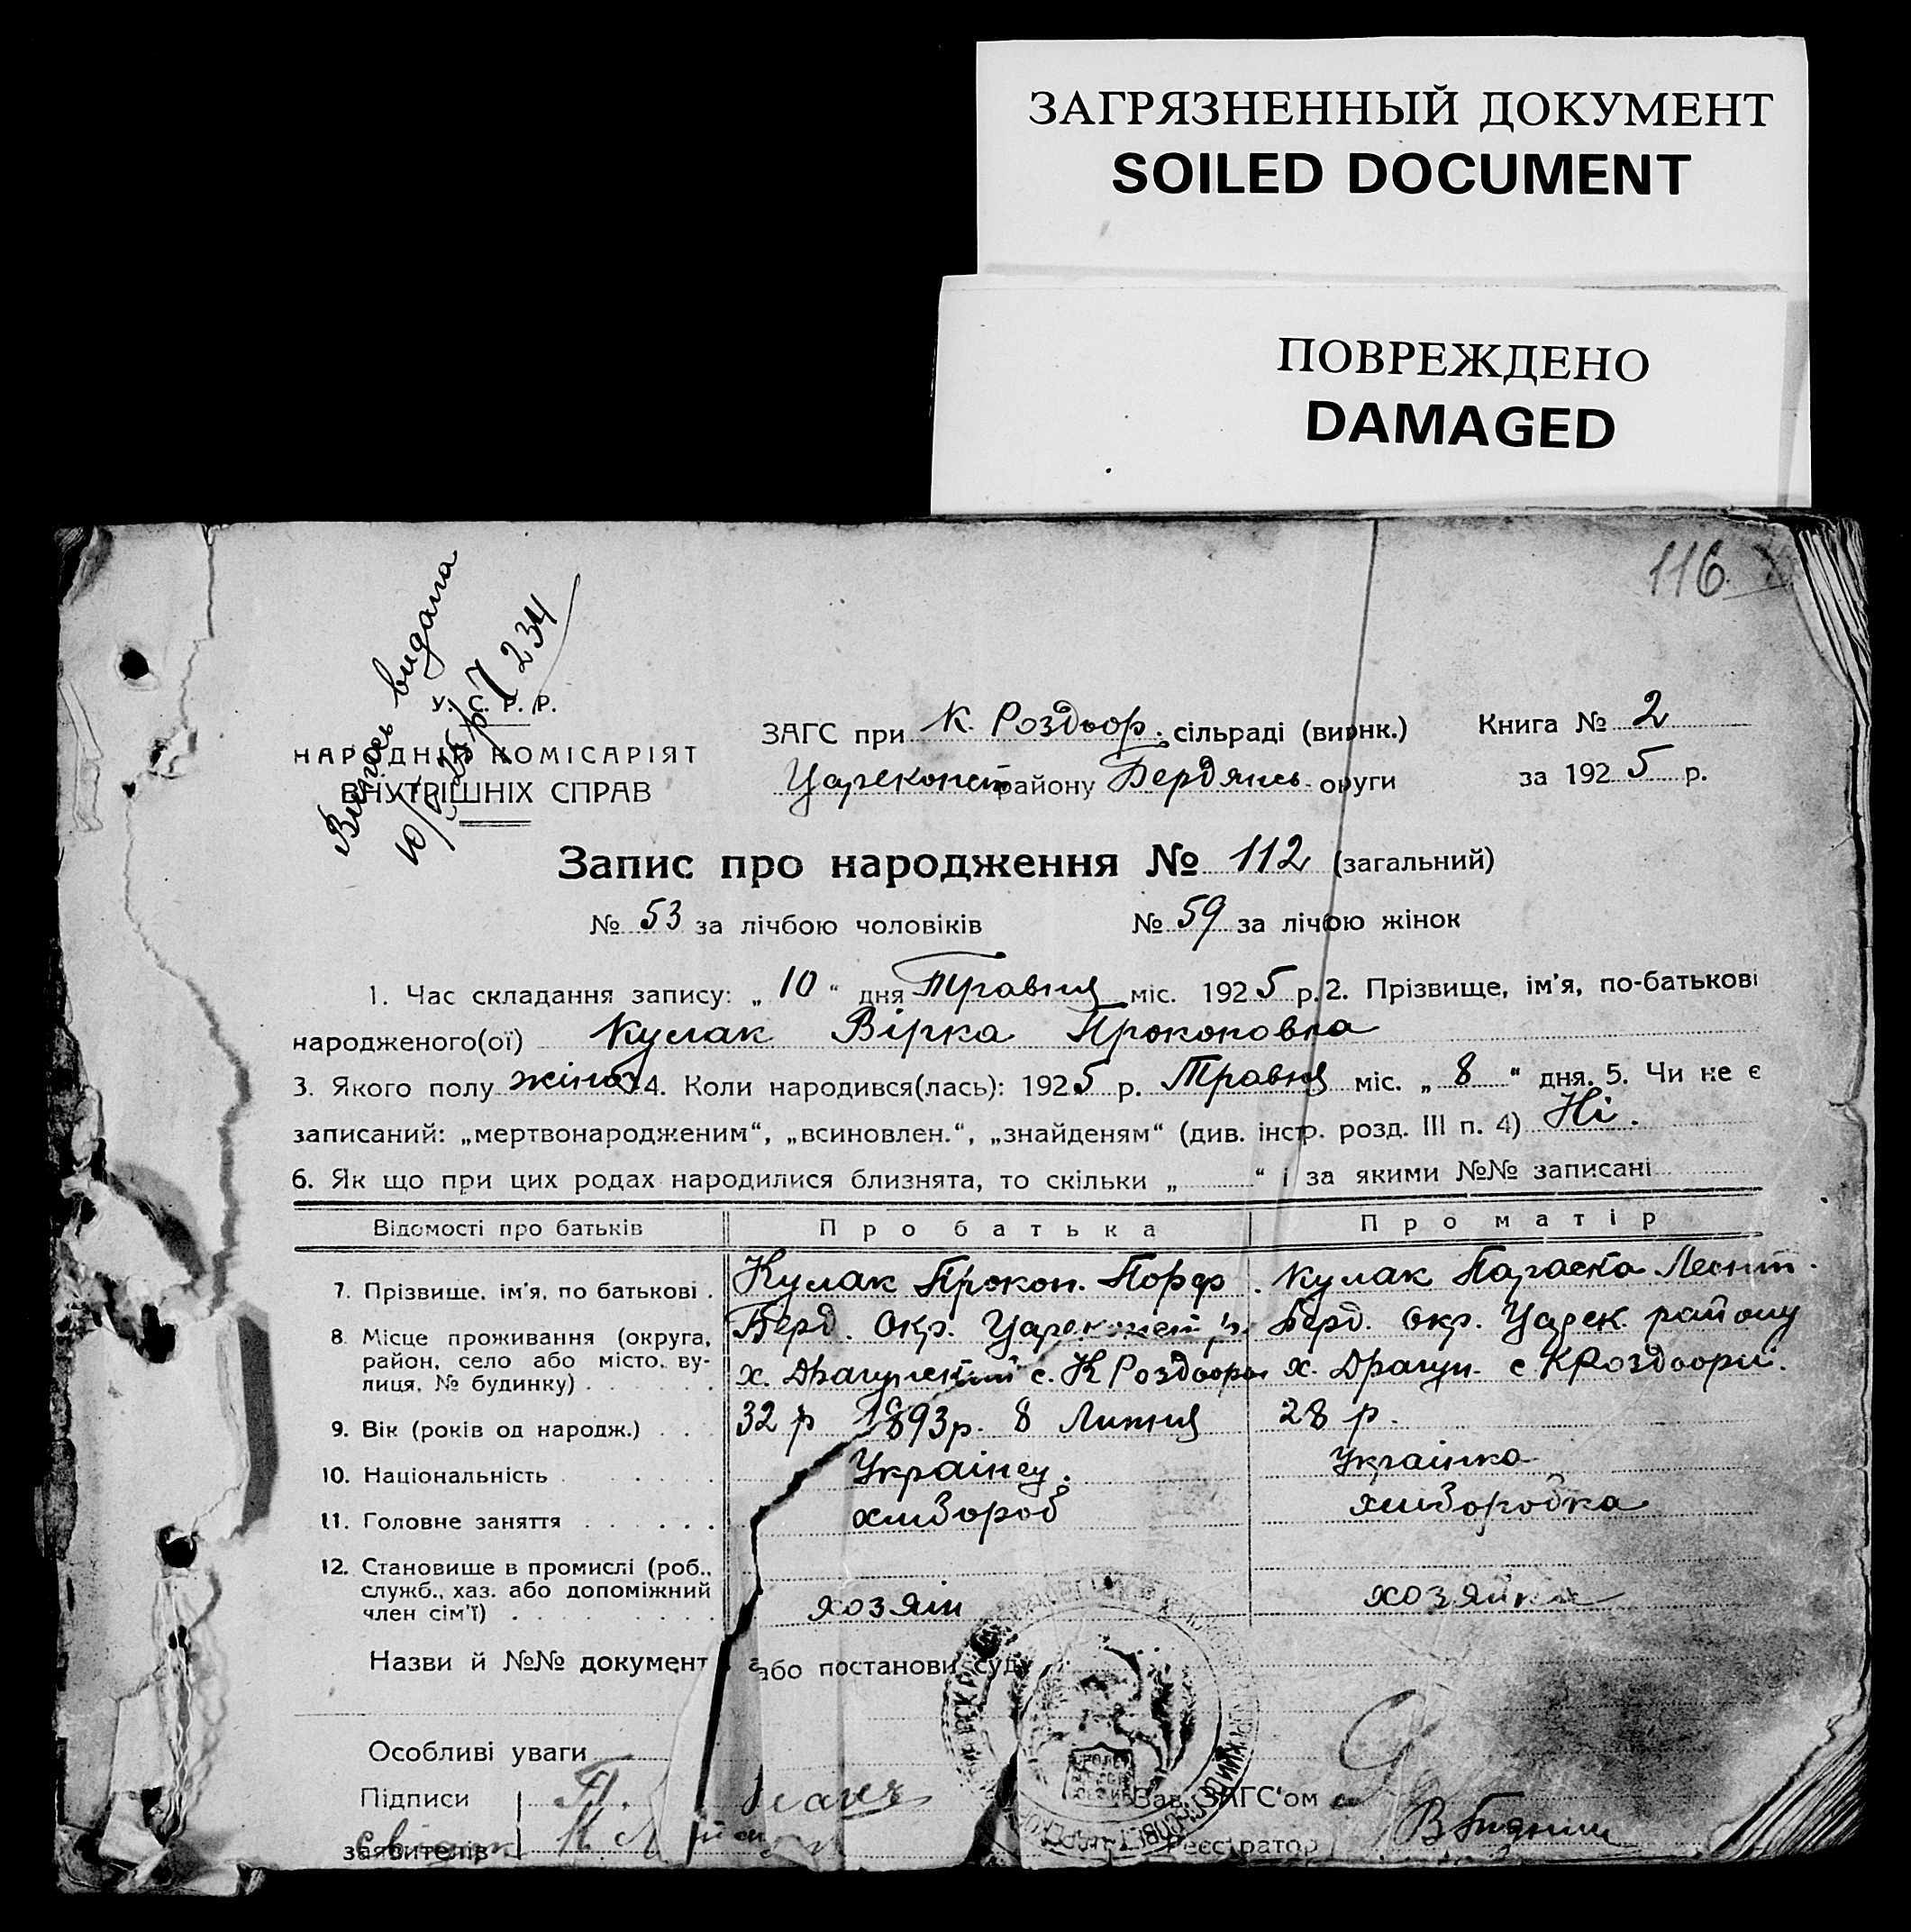 ЗАГРЯЗНЕННЫЙ ДОКУМЕНТ
SOILED DOCUMENT
ПОВРЕЖДЕНО
DAMAGED
116
видана
234
У. С. Р. Р.
НАРОДНІЙ КОМІСАРІЯТ
ВНУТРІШНІХ СПРАВ
ЗАГС при К. Роздор. сільраді (виónк.)
Цареконст району Бердянсь. округи
Книга № 2
за 1925 р.
Запис про народження № 112 (загальний)
№ 53 за лічбою чоловіків № 59 за лічбою жінок
1. Час складання запису: „ 10 “ дня Травня міс. 1925 р. 2. Прізвище, ім’я, по-батькові
народженого(ої) Кулак Вірка Прокоповна
3. Якого полу 4. Коли народився(лась): 1925 р. Травня міс. „ 8 “ дня. 5. Чи не є
записаний: „мертвонародженим“, „всиновлен.“, „знайденям“ (див. інстр. розд. III п. 4) Ні.
6. Як що при цих родах народилися близнята, то скільки „ “ і за якими №№ записані
Відомості про батьків Про батька Про матір
7. Прізвище, ім’я, по батькові . Кулак Прокоп. Порф. Кулак Параска
8. Місце проживання (округа, район, село або місто, ву-
лиця, № будинку) . Берд. Окр. Цареконст р. Берд. окр. Царек. району
х. с. К Роздори х. Драгун. с К Роздори.
9. Вік (років од народж.) . . . 32 р 1893 р. 8 Липня 28 р.
10. Національність Українец. Українка
11. Головне заняття . . . . . . хлібороб хліборобка
12. Становище в промислі (роб.,
служб., хаз. або допоміжний
член сім’ї) . хозяін хозяйка
Назви й №№ документ або постанови суду
Особливі уваги
Підписи
заявителів
Зав. ЗАГС‘ом
Реєстратор